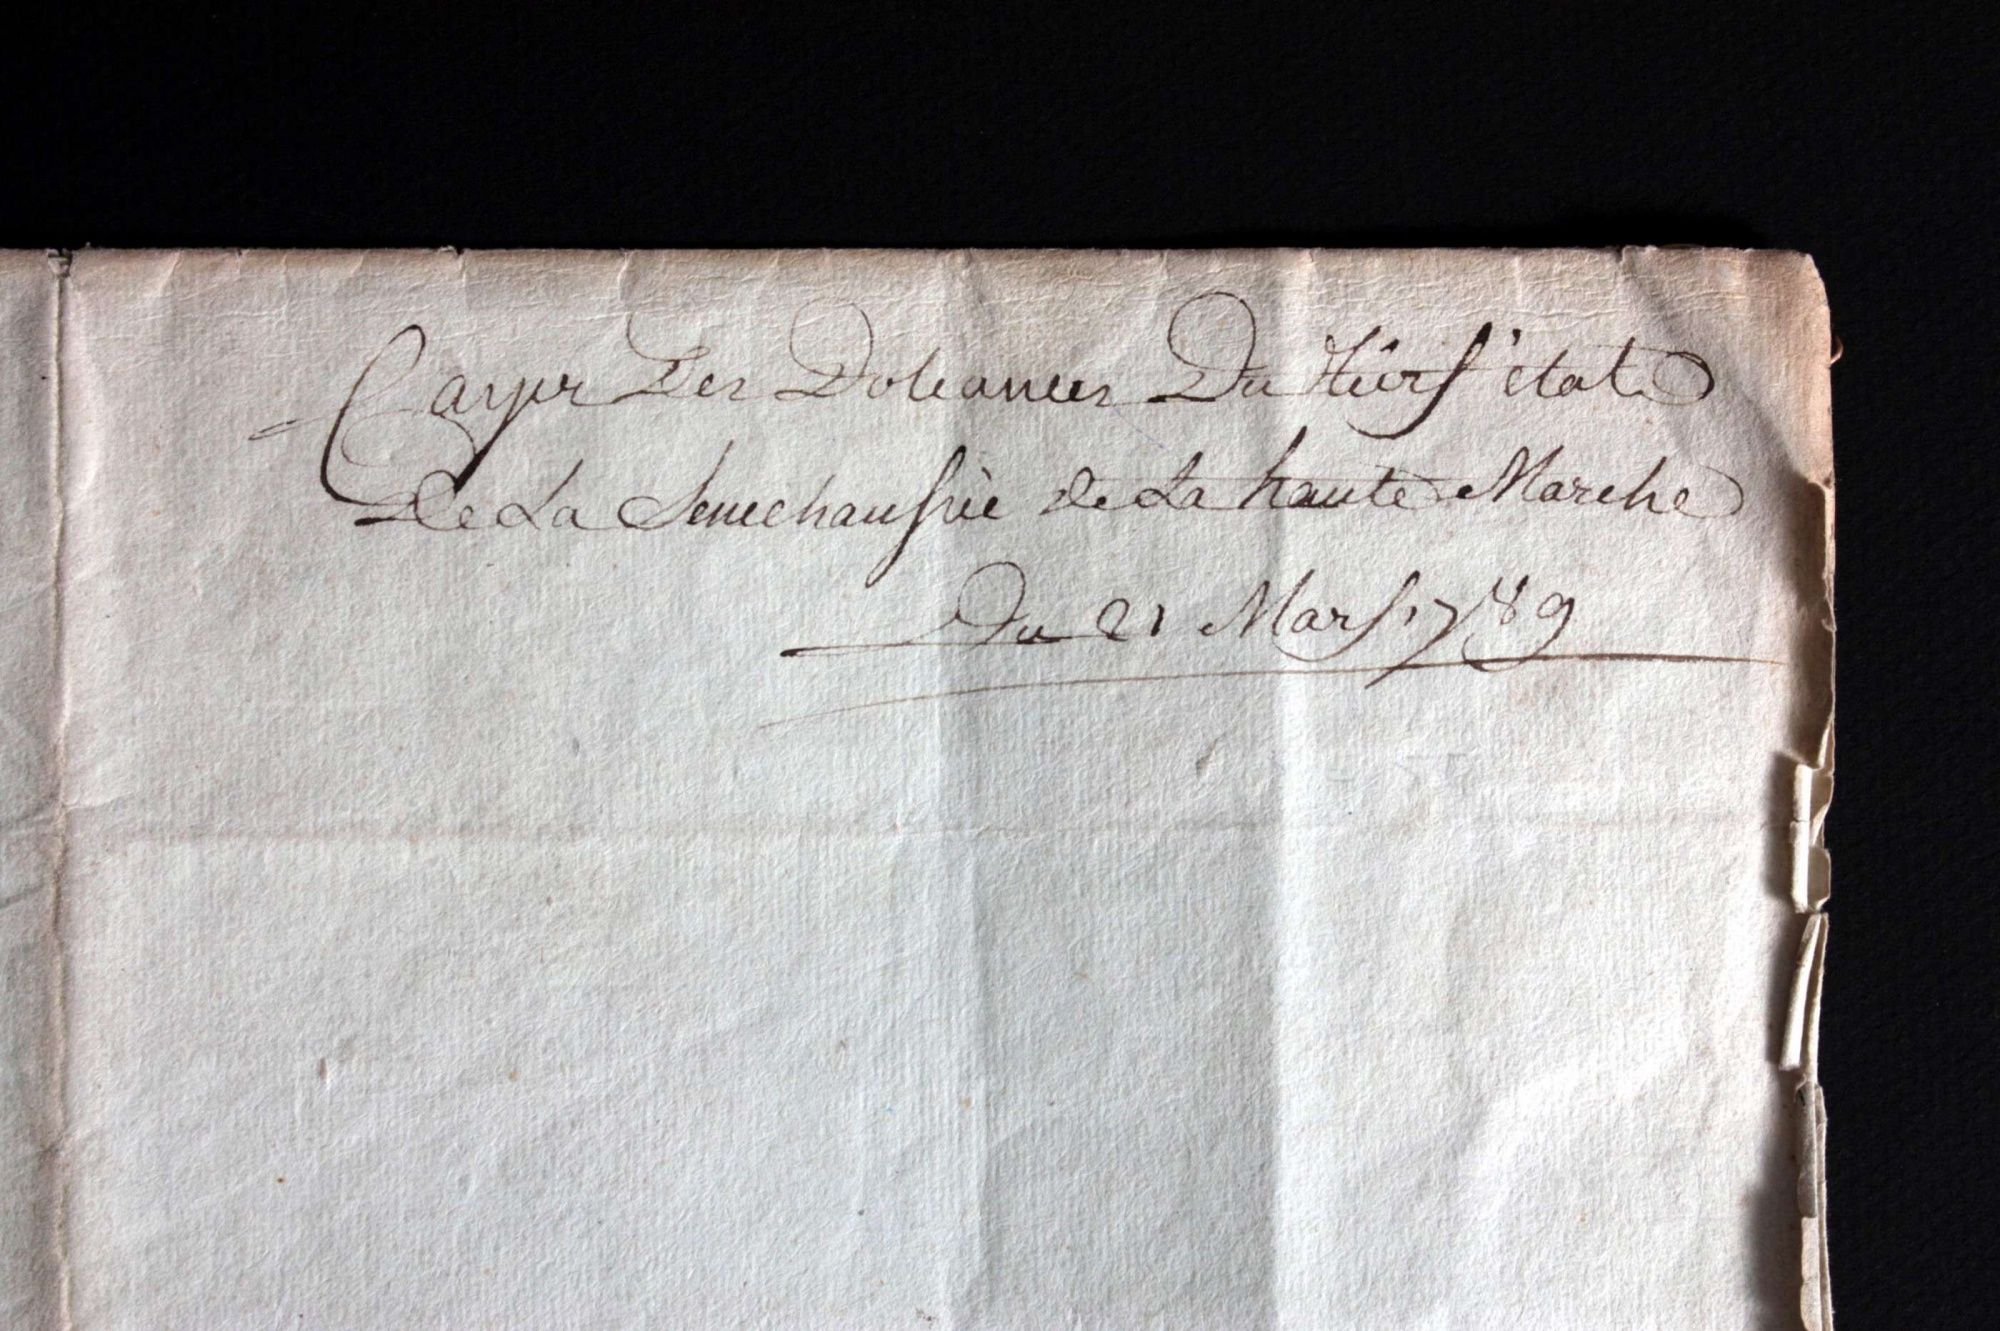 Cayer Des Doleances Du tiers état
De La Senechaussée de La haute Marche
Du 21 Mars 1789